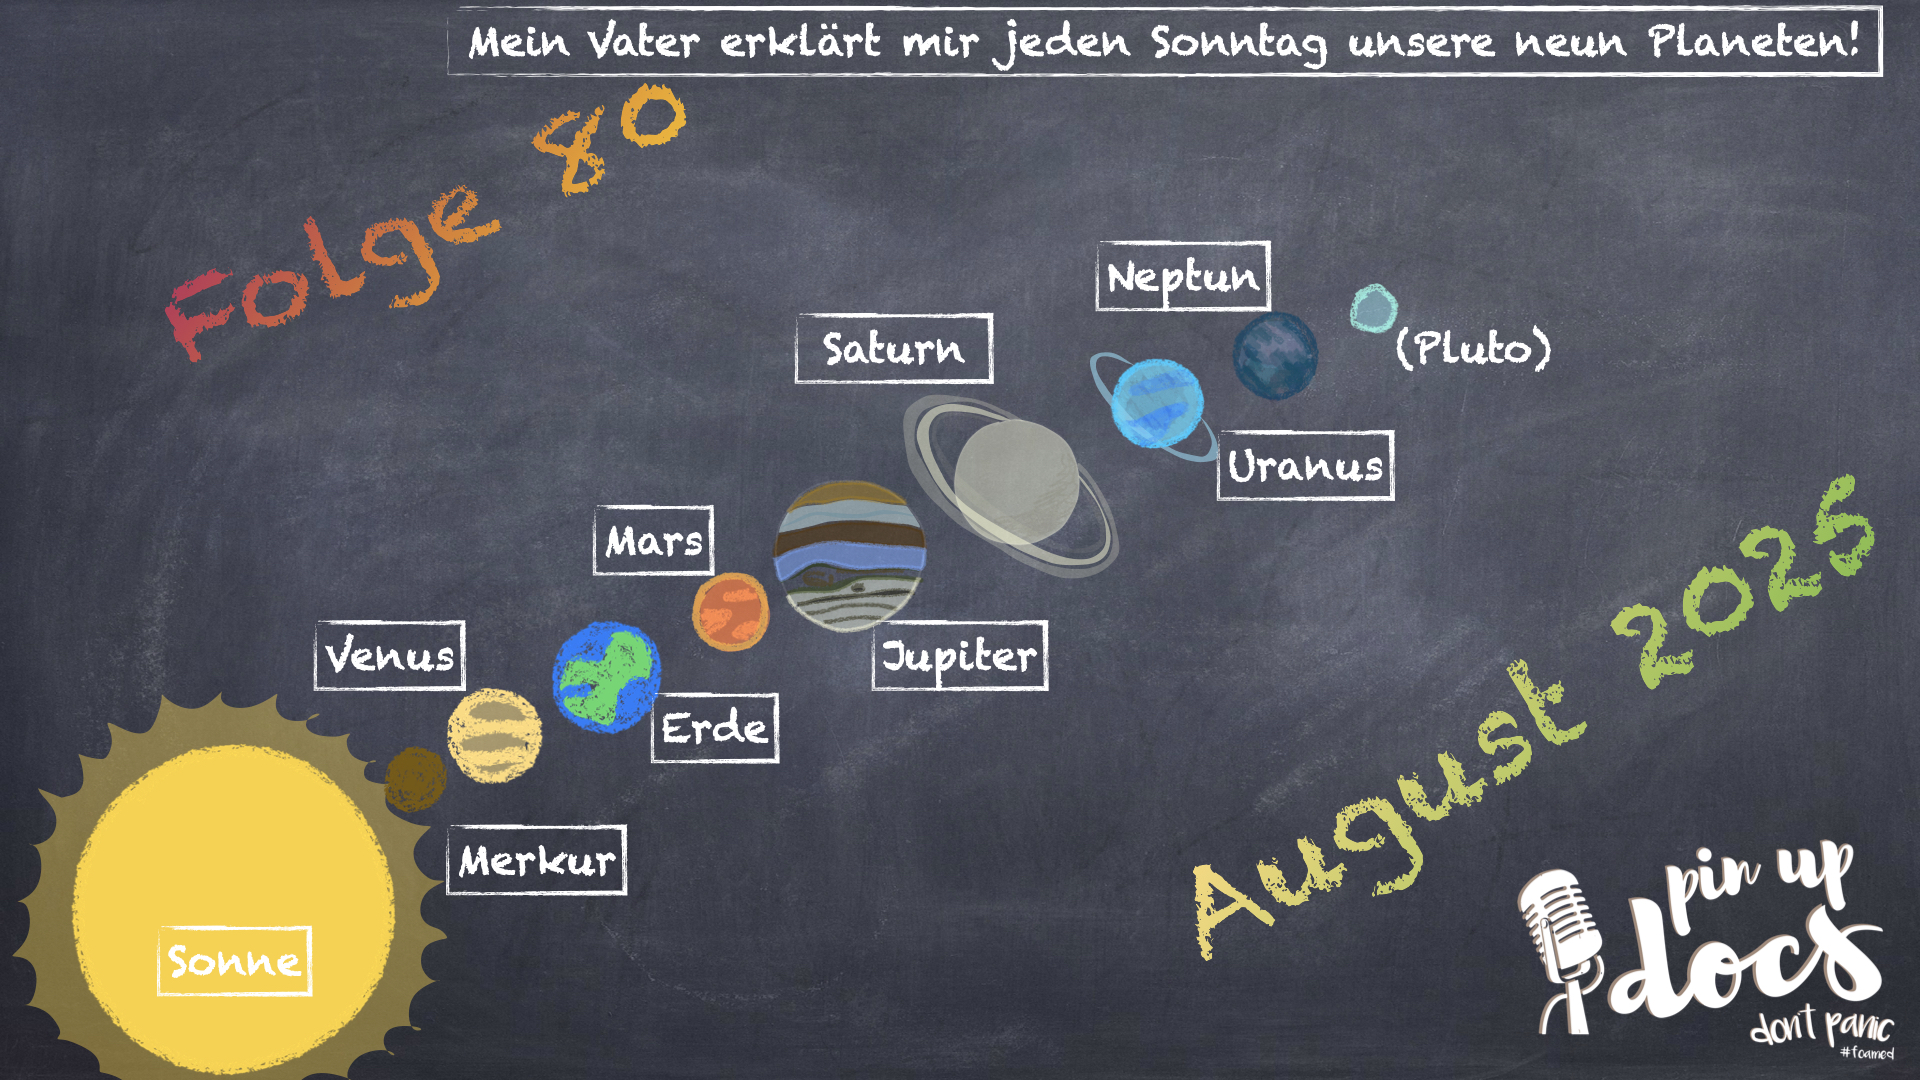 Mein Vater erklärt mir jeden Sonntag unsere neun Planeten!
Folge 80
Neptun
(Pluto)
Saturn
Uranus
Mars
Jupiter
Venus
Erde
Merkur
Sonne
August 2025
pin up
docs
don't panic
#foamed